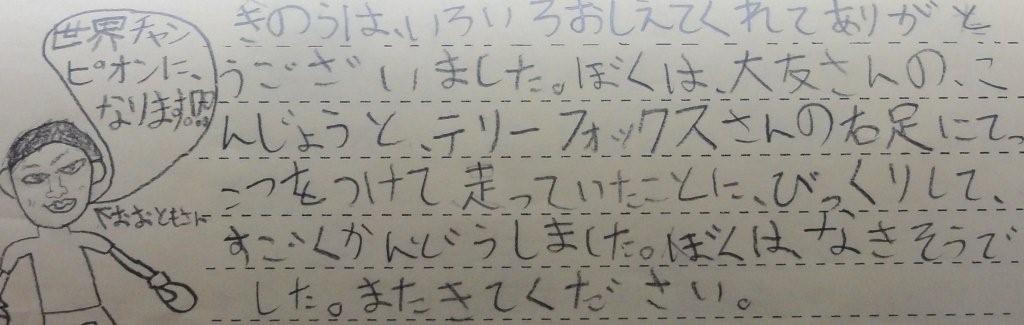 世界チャン
ピオンに、
なります!!
おおともさん
きのうは、いろいろおしえてくれてありがと
うございました。ぼくは、大友さんの、こ
んじょうと、テリーフォックスさんの右足にてっ
こつをつけて走っていたことに、びっくりして、
すごくかんどうしました。ぼくは、なきそうで
した。またきてください。